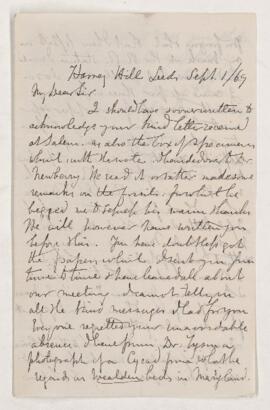 Harvey Hill Leeds Sept. 1/69
My Dear Sir
I should have sooner written to
acknowledge your kind letter received
at Salem. as also the box of specimens
which with the note I handed over to Dr
Newberry. He read it & later made some
remarks on the fossils for which he
begged me to express his warm thanks
He will however have written you
before this. You have doubtless got
the papers which I sent you from
time to time & have learned all about
our meeting. I cannot tell you
all the kind messages I had for you
Every one regretted your unavoidable
absence. I have from Dr. Tyson a
photograph of a Cycad from what he
regards as Wealden beds in Maryland.